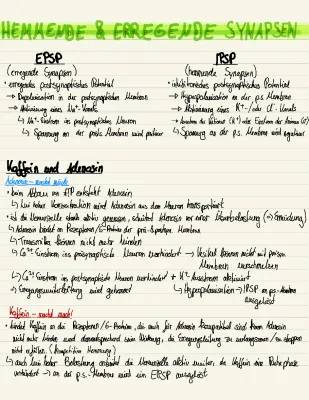 HEMMENDE & ERREGENDE SYNAPSEN
EPSP
(erregende Synapsen)
• erregendes postsynaptisches Potential
→ Depolarisation in der postsynaptischen Membran
→ Aktivierung eines Na⁺-Kanals
↳ Na⁺-Einstrom ins postsynaptische Neuron
↳ Spannung an der posts. Membran wird positiver
IPSP
(hemmende Synapsen)
• inhibitorisches postsynaptisches Potential
→ Hyperpolarisation an der p.s. Membran
→ Aktivierung eines K⁺-/ oder Cl⁻-Kanals
→ der Kationen (K⁺) oder Einstrom der Anionen (Cl⁻)
↳ Spannung an der p.s. Membran wird negativer
Koffein und Adenosin
Adenosin - macht müde
• beim Abbau von ATP entsteht Adenosin
↳ bei hoher Konzentration wird Adenosin aus dem Neuron transportiert
• ist die Nervenzelle stark aktiv gewesen, schützt Adenosin vor einer Überbelastung (⇒ Ermüdung)
↳ Adenosin bindet an Rezeptoren/G-Proteine der prä-Synapse Membran
↳ Transmitter können nicht mehr binden
↳ Ca²⁺-Einstrom ins präsynaptische Neuron verhindert → Vesikel können nicht mit präsyn
Membran verschmelzen
↳ Ca²⁺-Einstrom ins postsynaptische Neuron verhindert + K⁺-Ausstrom aktiviert
↳ Erregungsweiterleitung wird gehemmt
↳ Hyperpolarisation → IPSP an p.s.-Membran
ausgelöst
Koffein - macht wach!
• bindet Koffein an die Rezeptoren/G-Proteine, die auch für Adenosin sind kann Adenosin
nicht mehr binden und dementsprechend seine Wirkung, die Erregungsleitung zu verlangsamen/zu stoppen
nicht erfüllen. (kompetitive Hemmung)
↳ auch bei hoher Belastung arbeitet die Nervenzelle aktiv weiter, da Koffein eine Ruhephase
verhindert → an der p.s.-Membran wird ein EPSP ausgelöst